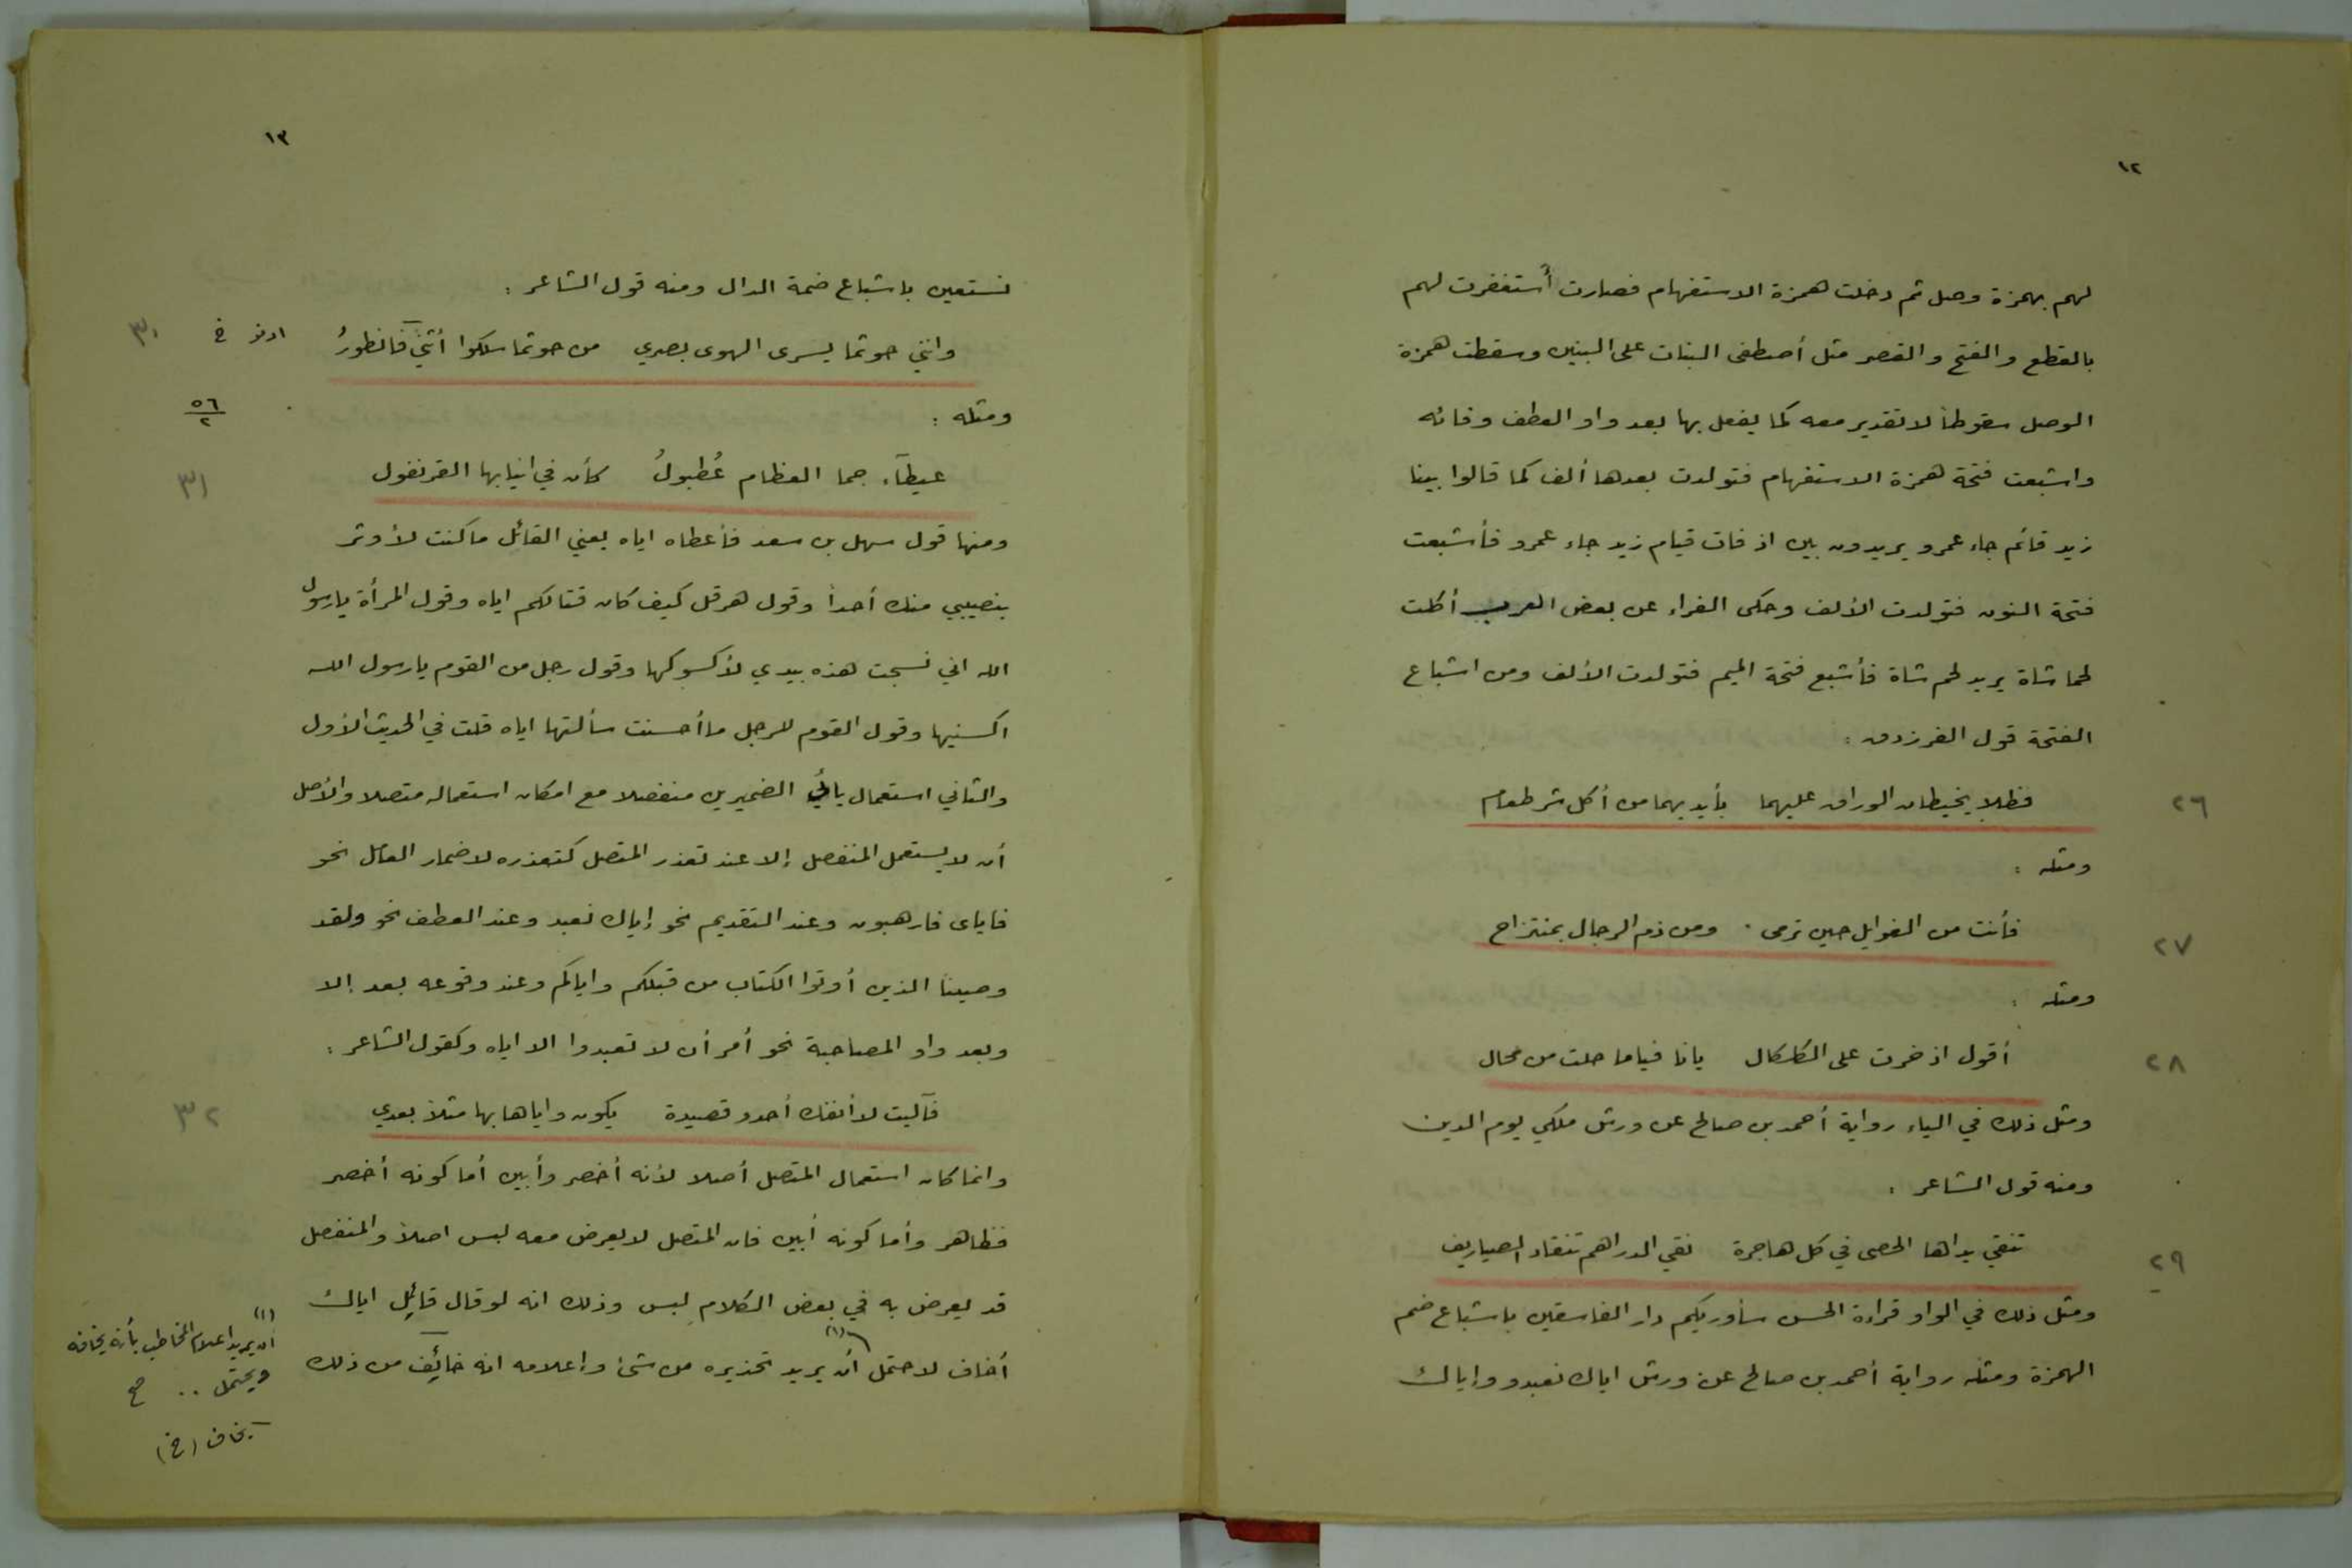 ١٢
لهم بهمزة وصل ثم دخلت همزة الاستفهام فصارت أستغفرت لهم
بالقطع والفتح والقصر مثل أصطفى البنات على البنين وسقطت همزة
الوصل سقوطاً لا تقدير معه كما يفعل بها بعد واو العطف وفائه
واشبعت فتحة همزة الاستفهام فتولدت بعدها ألف كما قالوا بينا
زيد قائم جاء عمرو يريدون بين اذ فات قيام زيد جاء عمرو فأشبعت
فتحة النون فتولدت الألف وحكى الفراء عن بعض العرب أكلت
لحما شاة يريد لحم شاة فأشبع فتحة الميم فتولدت الألف ومن اشباع
الفتحة قول الفرزدق :
فظلا يخيطان الوراق عليهما بأيديهما من أكل شر طعام ٢٦
ومثله :
فأنت من الغوايل حين ترمى ومن ذم الرجال بمنتزاح ٢٧
ومثله :
أقول اذ خرت على الكلكال يانا فياما حلت من مجال ٢٨
ومثل ذلك في الياء رواية أحمد بن صالح عن ورش ملكي يوم الدين
ومنه قول الشاعر :
تنقي يداها الحصى في كل هاجرة نقي الدراهم تنقاد الصياريف ٢٩
ومثل ذلك في الواو قراءة الحسن سأوريكم دار الفاسقين باشباع ضم
الهمزة ومثله رواية أحمد بن صالح عن ورش اياك نعبدو وإياك
١٣
نستعين باشباع ضمة الدال ومنه قول الشاعر :
وانني حوثما يسرى الهوى بصري من حوثما سلكوا أثني فانظورُ ادنو خ ٣٠
ومثله : ٥٦/٢
عيطآء جما العظام عُطبولُ كأن في انيابها القرنفول ٣١
ومنها قول سهل بن سعد فأعطاه اياه يعني القائل ما كنت لأوثر
بنصيبي منك أحداً وقول هرقل كيف كان قتالكم اياه وقول المرأة يا رسول
الله اني نسجت هذه بيدي لأكسوكها وقول رجل من القوم يا رسول الله
اكسنيها وقول القوم للرجل ما أحسنت سألتها اياه قلت في الحديث الأول
والثاني استعمال ياني الضميرين منفصلا مع امكان استعماله متصلا والأصل
أن لا يستعمل المنفصل إلا عند تعذر المتصل كتعذره لاضمار العامل نحو
فاياى فارهبون وعند التقديم نحو إياك نعبد وعند العطف نحو ولقد
وصينا الذين أوتوا الكتاب من قبلكم واياكم وعند وقوعه بعد إلا
وبعد واو المصاحبة نحو أمر أن لا تعبدوا الا اياه وكقول الشاعر :
فآليت لا أنفك أحدو قصيدة يكون واياها بها مثلا بعدي ٣٢
وانما كان استعمال المتصل أصلا لأنه أخصر وأبين أما كونه أخصر
فظاهر وأما كونه أبين فان المتصل لا يعرض معه لبس اصلا والمنفصل
قد يعرض به في بعض الكلام لبس وذلك انه لو قال قائل اياك
أخاف لاحتمل (١) أن يريد تحذيره من شئ وإعلامه انه خائف من ذلك
(١)
أن يريد اعلام المخاطب بأنه يخافه
ويحتمل .. صح
يخاف (خ)